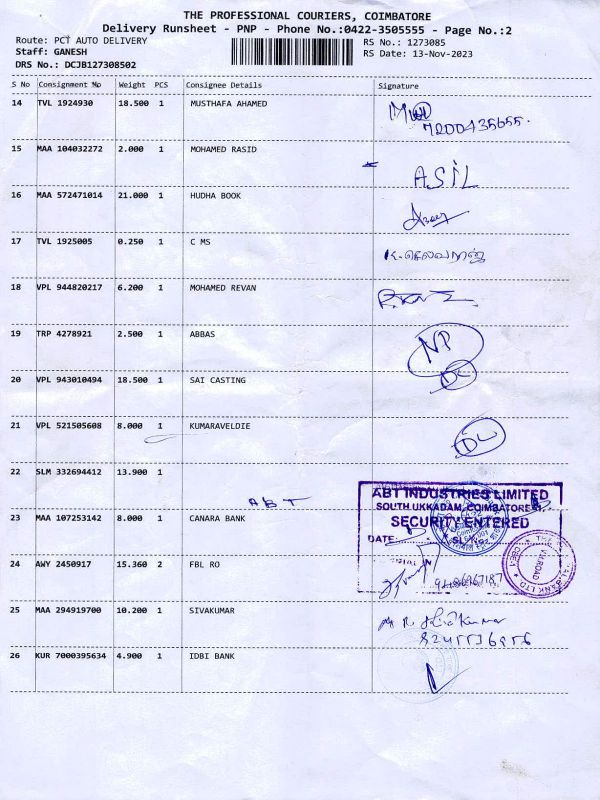 THE PROFESSIONAL COURIERS, COIMBATORE
Delivery Runsheet - PNP - Phone No.:0422-3505555 - Page No.:2
Route: PCT AUTO DELIVERY
RS No.: 1273085
Staff: GANESH
RS Date: 13-Nov-2023
DRS No.: DCJB127308502
S No Consignment No Weight PCS Consignee Details Signature
14 TVL 1924930 18.500 1 MUSTHAFA AHAMED
7200435655.
15 MAA 104032272 2.000 1 MOHAMED RASID
ASIL
16 MAA 572471014 21.000 1 HUDHA BOOK
17 TVL 1925005 0.250 1 C MS
K.செல்வராஜ்
18 VPL 944820217 6.200 1 MOHAMED REVAN
19 TRP 4278921 2.500 1 ABBAS
NP
20 VPL 943010494 18.500 1 SAI CASTING
DL
21 VPL 521505608 8.000 1 KUMARAVELDIE
DL
22 SLM 332694412 13.900 1
ABT
ABT INDUSTRIES LIMITED
SOUTH UKKADAM, COIMBATORE
23 MAA 107253142 8.000 1 CANARA BANK
SECURITY ENTERED
DATE:
24 AWY 2450917 15.360 2 FBL RO
9486967187
25 MAA 294919700 10.200 1 SIVAKUMAR
26 KUR 7000395634 4.900 1 IDBI BANK